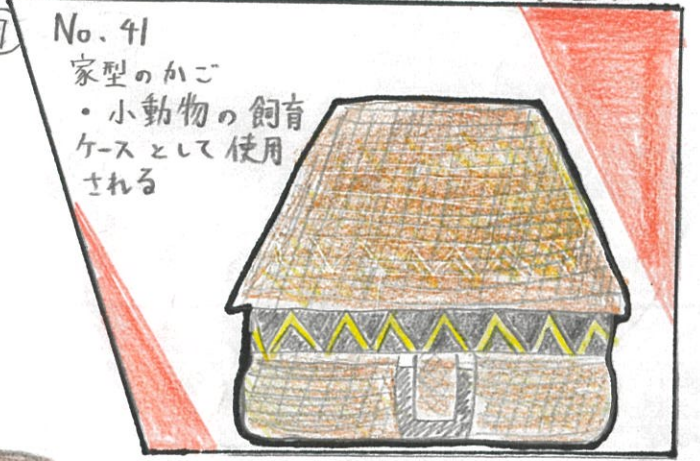 No. 41
家型のかご
・小動物の飼育
ケースとして使用
される